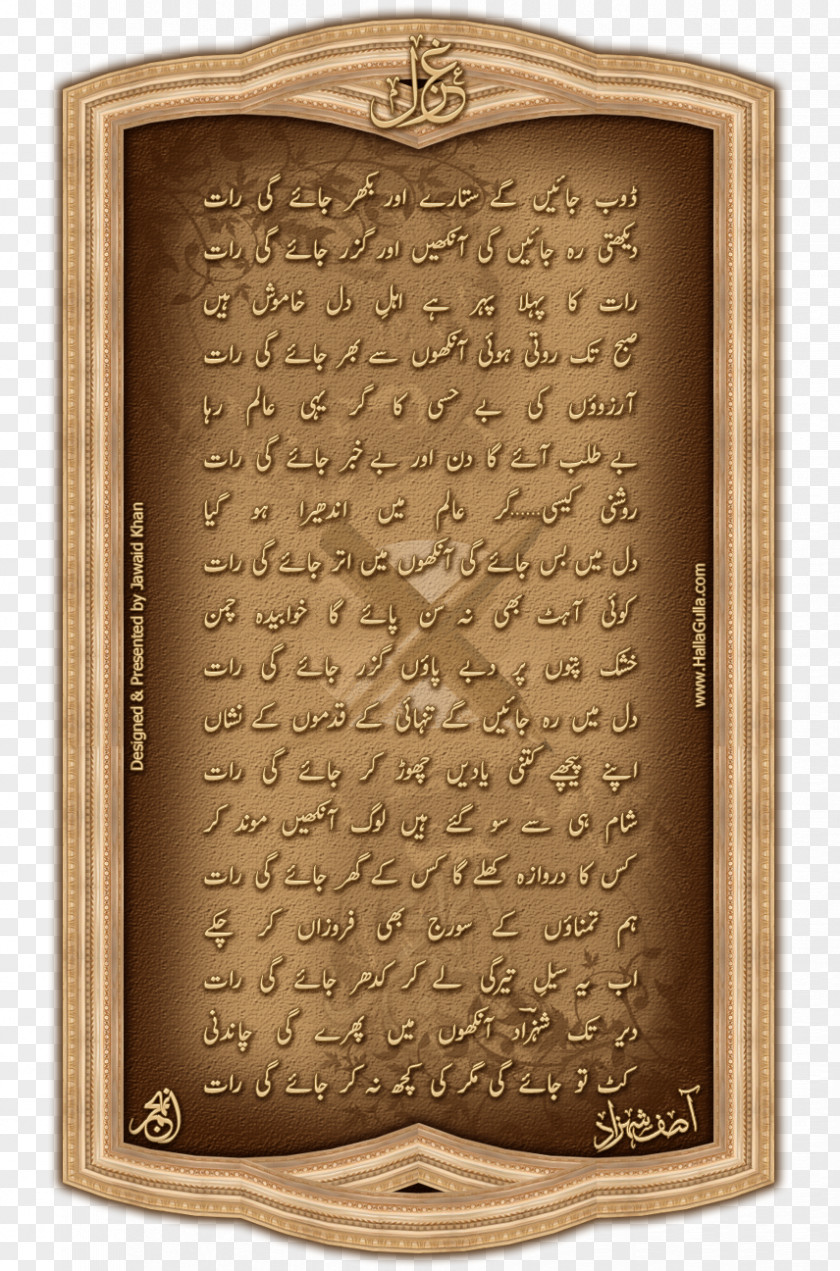 غزل
ڈوب جائیں گے ستارے اور بکھر جائے گی رات
دیکھتی رہ جائیں گی آنکھیں اور گزر جائے گی رات
رات کا پہلا پہر ہے اہلِ دل خاموش ہیں
صبح تک روتی ہوئی آنکھوں سے بھر جائے گی رات
آرزوؤں کی بے حسی کا گر یہی عالم رہا
بے طلب آئے گا دن اور بے خبر جائے گی رات
روشنی کیسی......گر عالم میں اندھیرا ہو گیا
دل میں بس جائے گی آنکھوں میں اتر جائے گی رات
کوئی آہٹ بھی نہ سن پائے گا خوابیدہ چمن
خشک پتوں پر دبے پاؤں گزر جائے گی رات
دل میں رہ جائیں گے تنہائی کے قدموں کے نشاں
اپنے پیچھے کتنی یادیں چھوڑ کر جائے گی رات
شام ہی سے سو گئے ہیں لوگ آنکھیں موند کر
کس کا دروازہ کھلے گا کس کے گھر جائے گی رات
ہم تمناؤں کے سورج بھی فروزاں کر چکے
اب یہ سیلِ تیرگی لے کر کدھر جائے گی رات
دیر تک شہزادؔ آنکھوں میں پھرے گی چاندنی
کٹ تو جائے گی مگر کی کچھ نہ کر جائے گی رات
آصف شہزاد
Designed & Presented by Jawaid Khan
www.HallaGulla.com